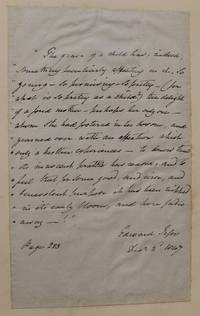 "The grave of a child has, indeed,
something peculiarly affecting in it. So
young – so promising – so pretty – (for
what is so pretty as a child?) the delight
of a fond mother – perhaps her only one –
whom she had fostered in her bosom, and
yearned over with an affection which
only a mother experiences – to
its innocent prattle has ceased, and to
feel that for some good, and wise, and
benevolent purpose it has been nipped
in its early bloom, and borne
away – !"
Edward Jesse
Page 288
1847